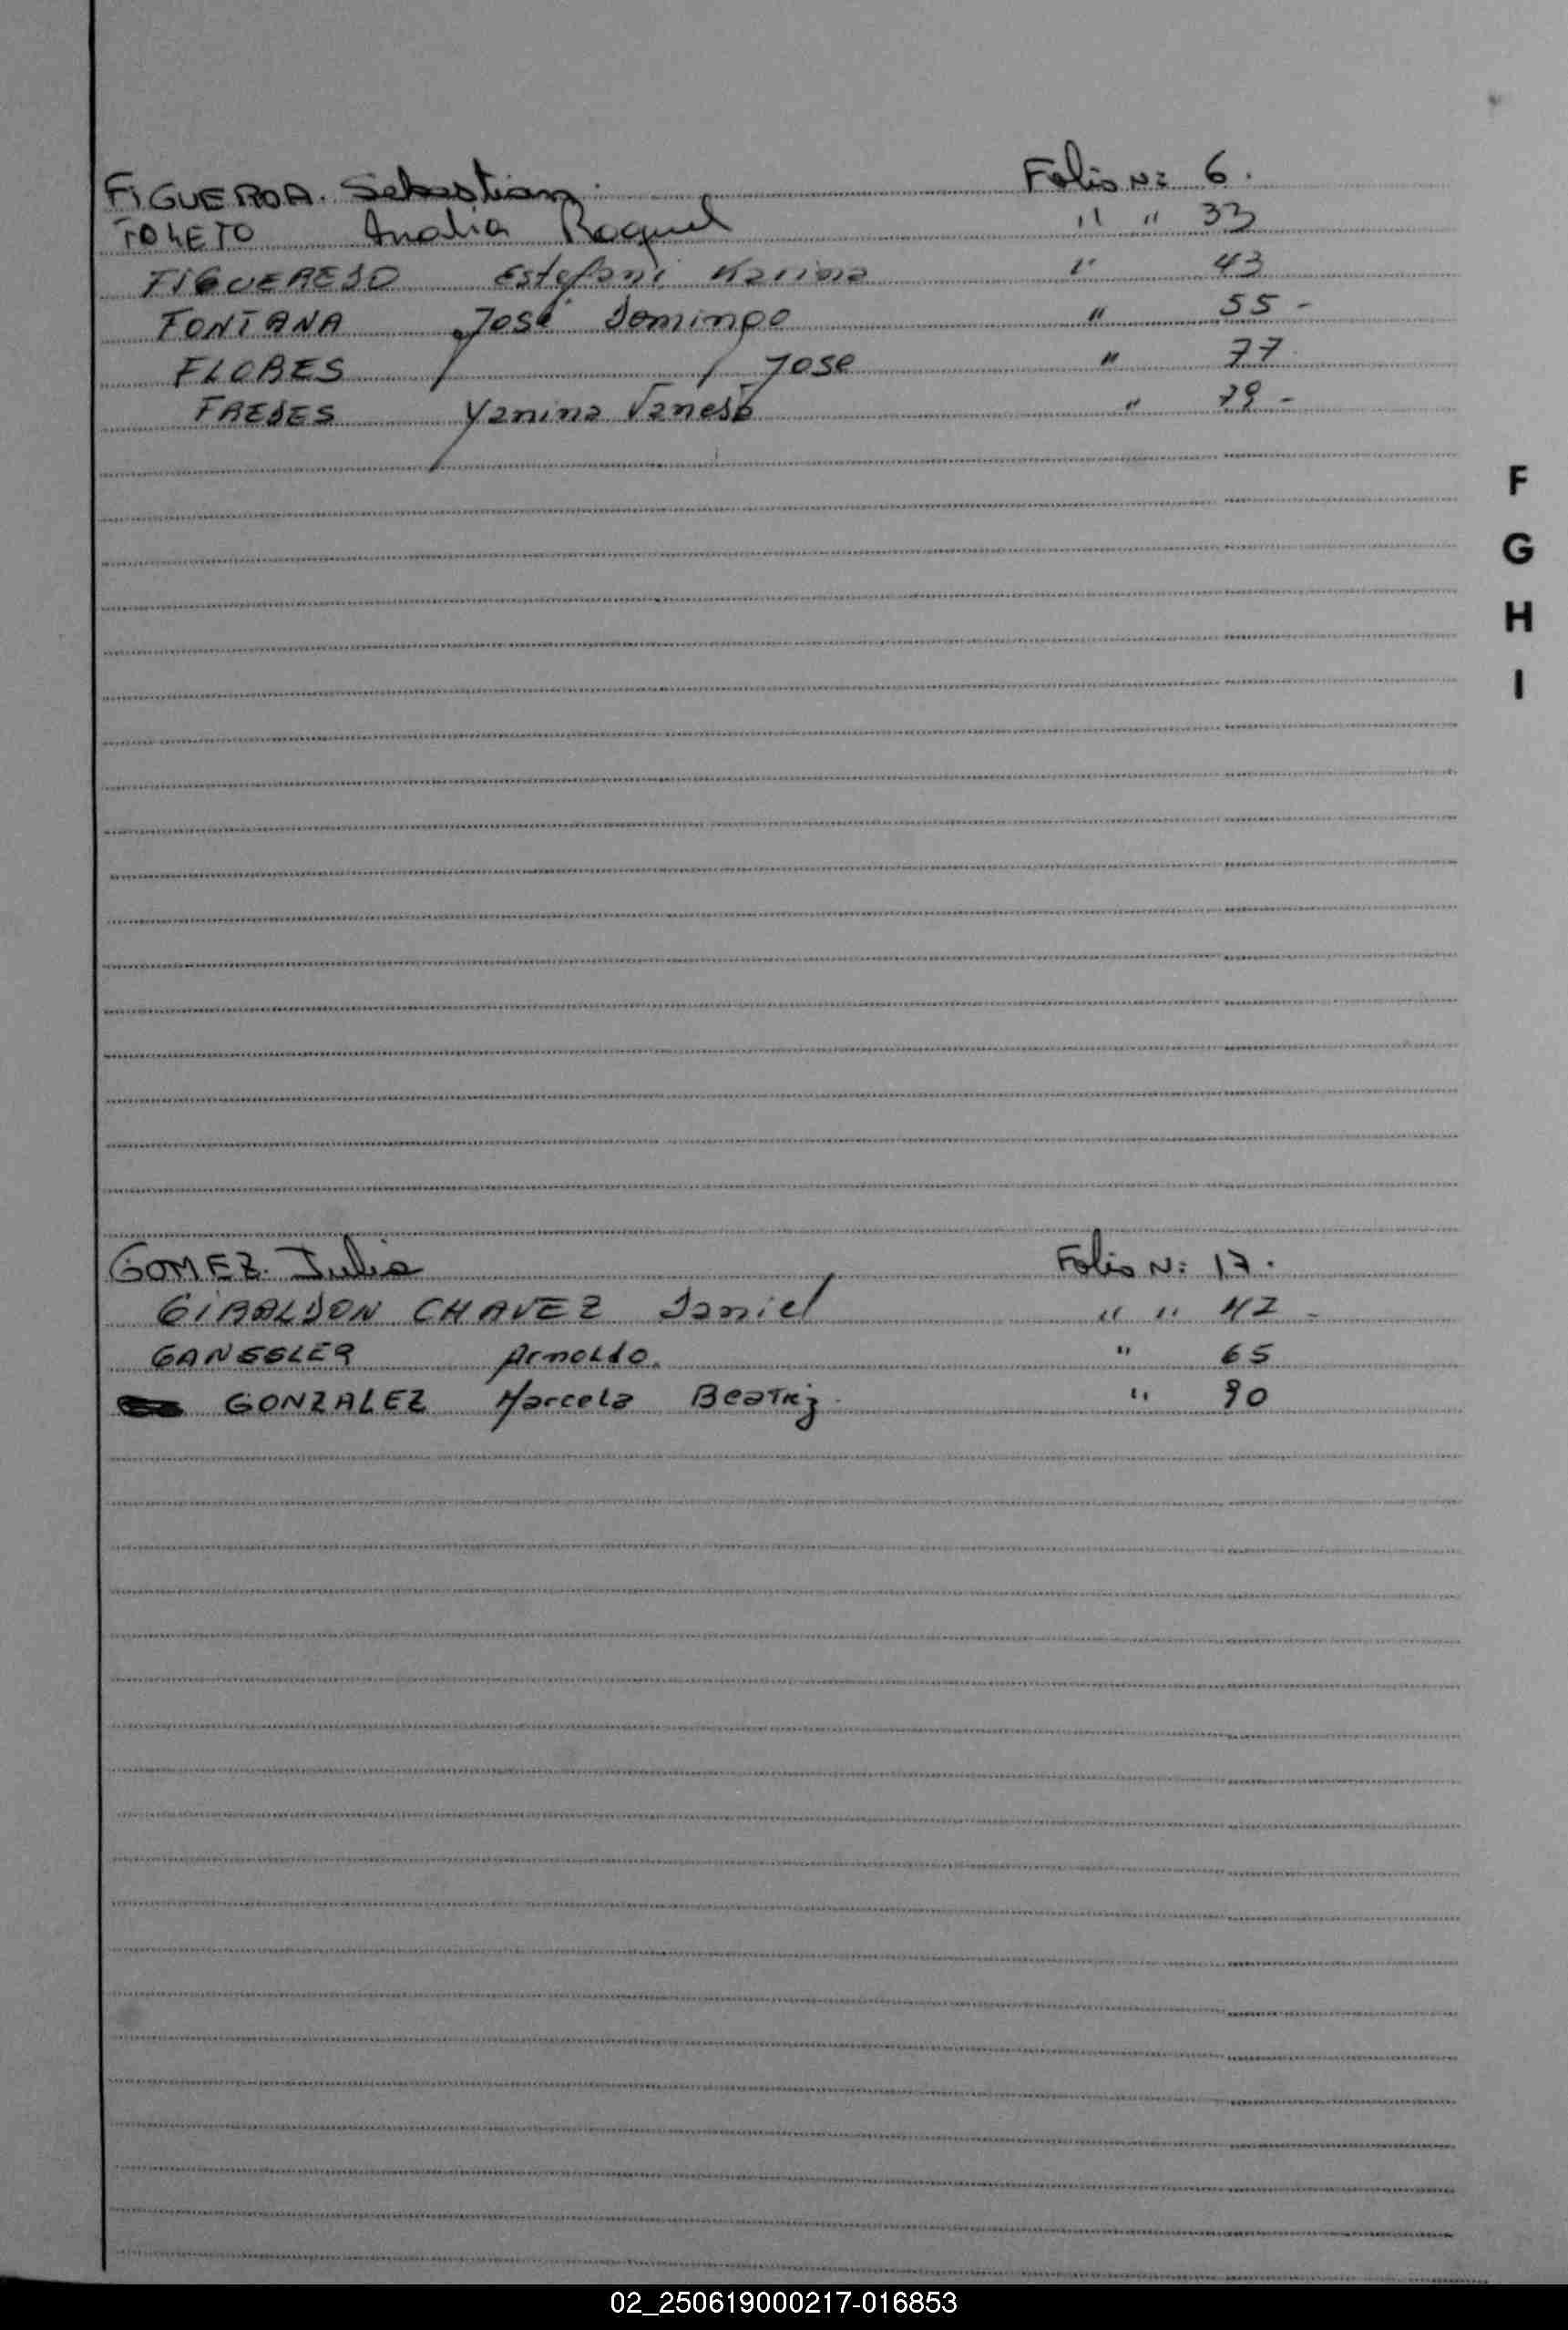 FIGUEROA. Sebastian. Folio Nº 6.
Analia Raquel " " 33
FIGUEREDO Estefani Karina " 43
FONTANA José Domingo " 55 -
FLORES Jose " 77
Yanina Vanesa " 79 -
F
G
H
I
GOMEZ. Julia Folio Nº 17.
GIRALDON CHAVEZ Daniel " " 42 -
GANSSLER Arnoldo. " 65
GONZALEZ Marcela Beatriz. " 90
02_250619000217-016853